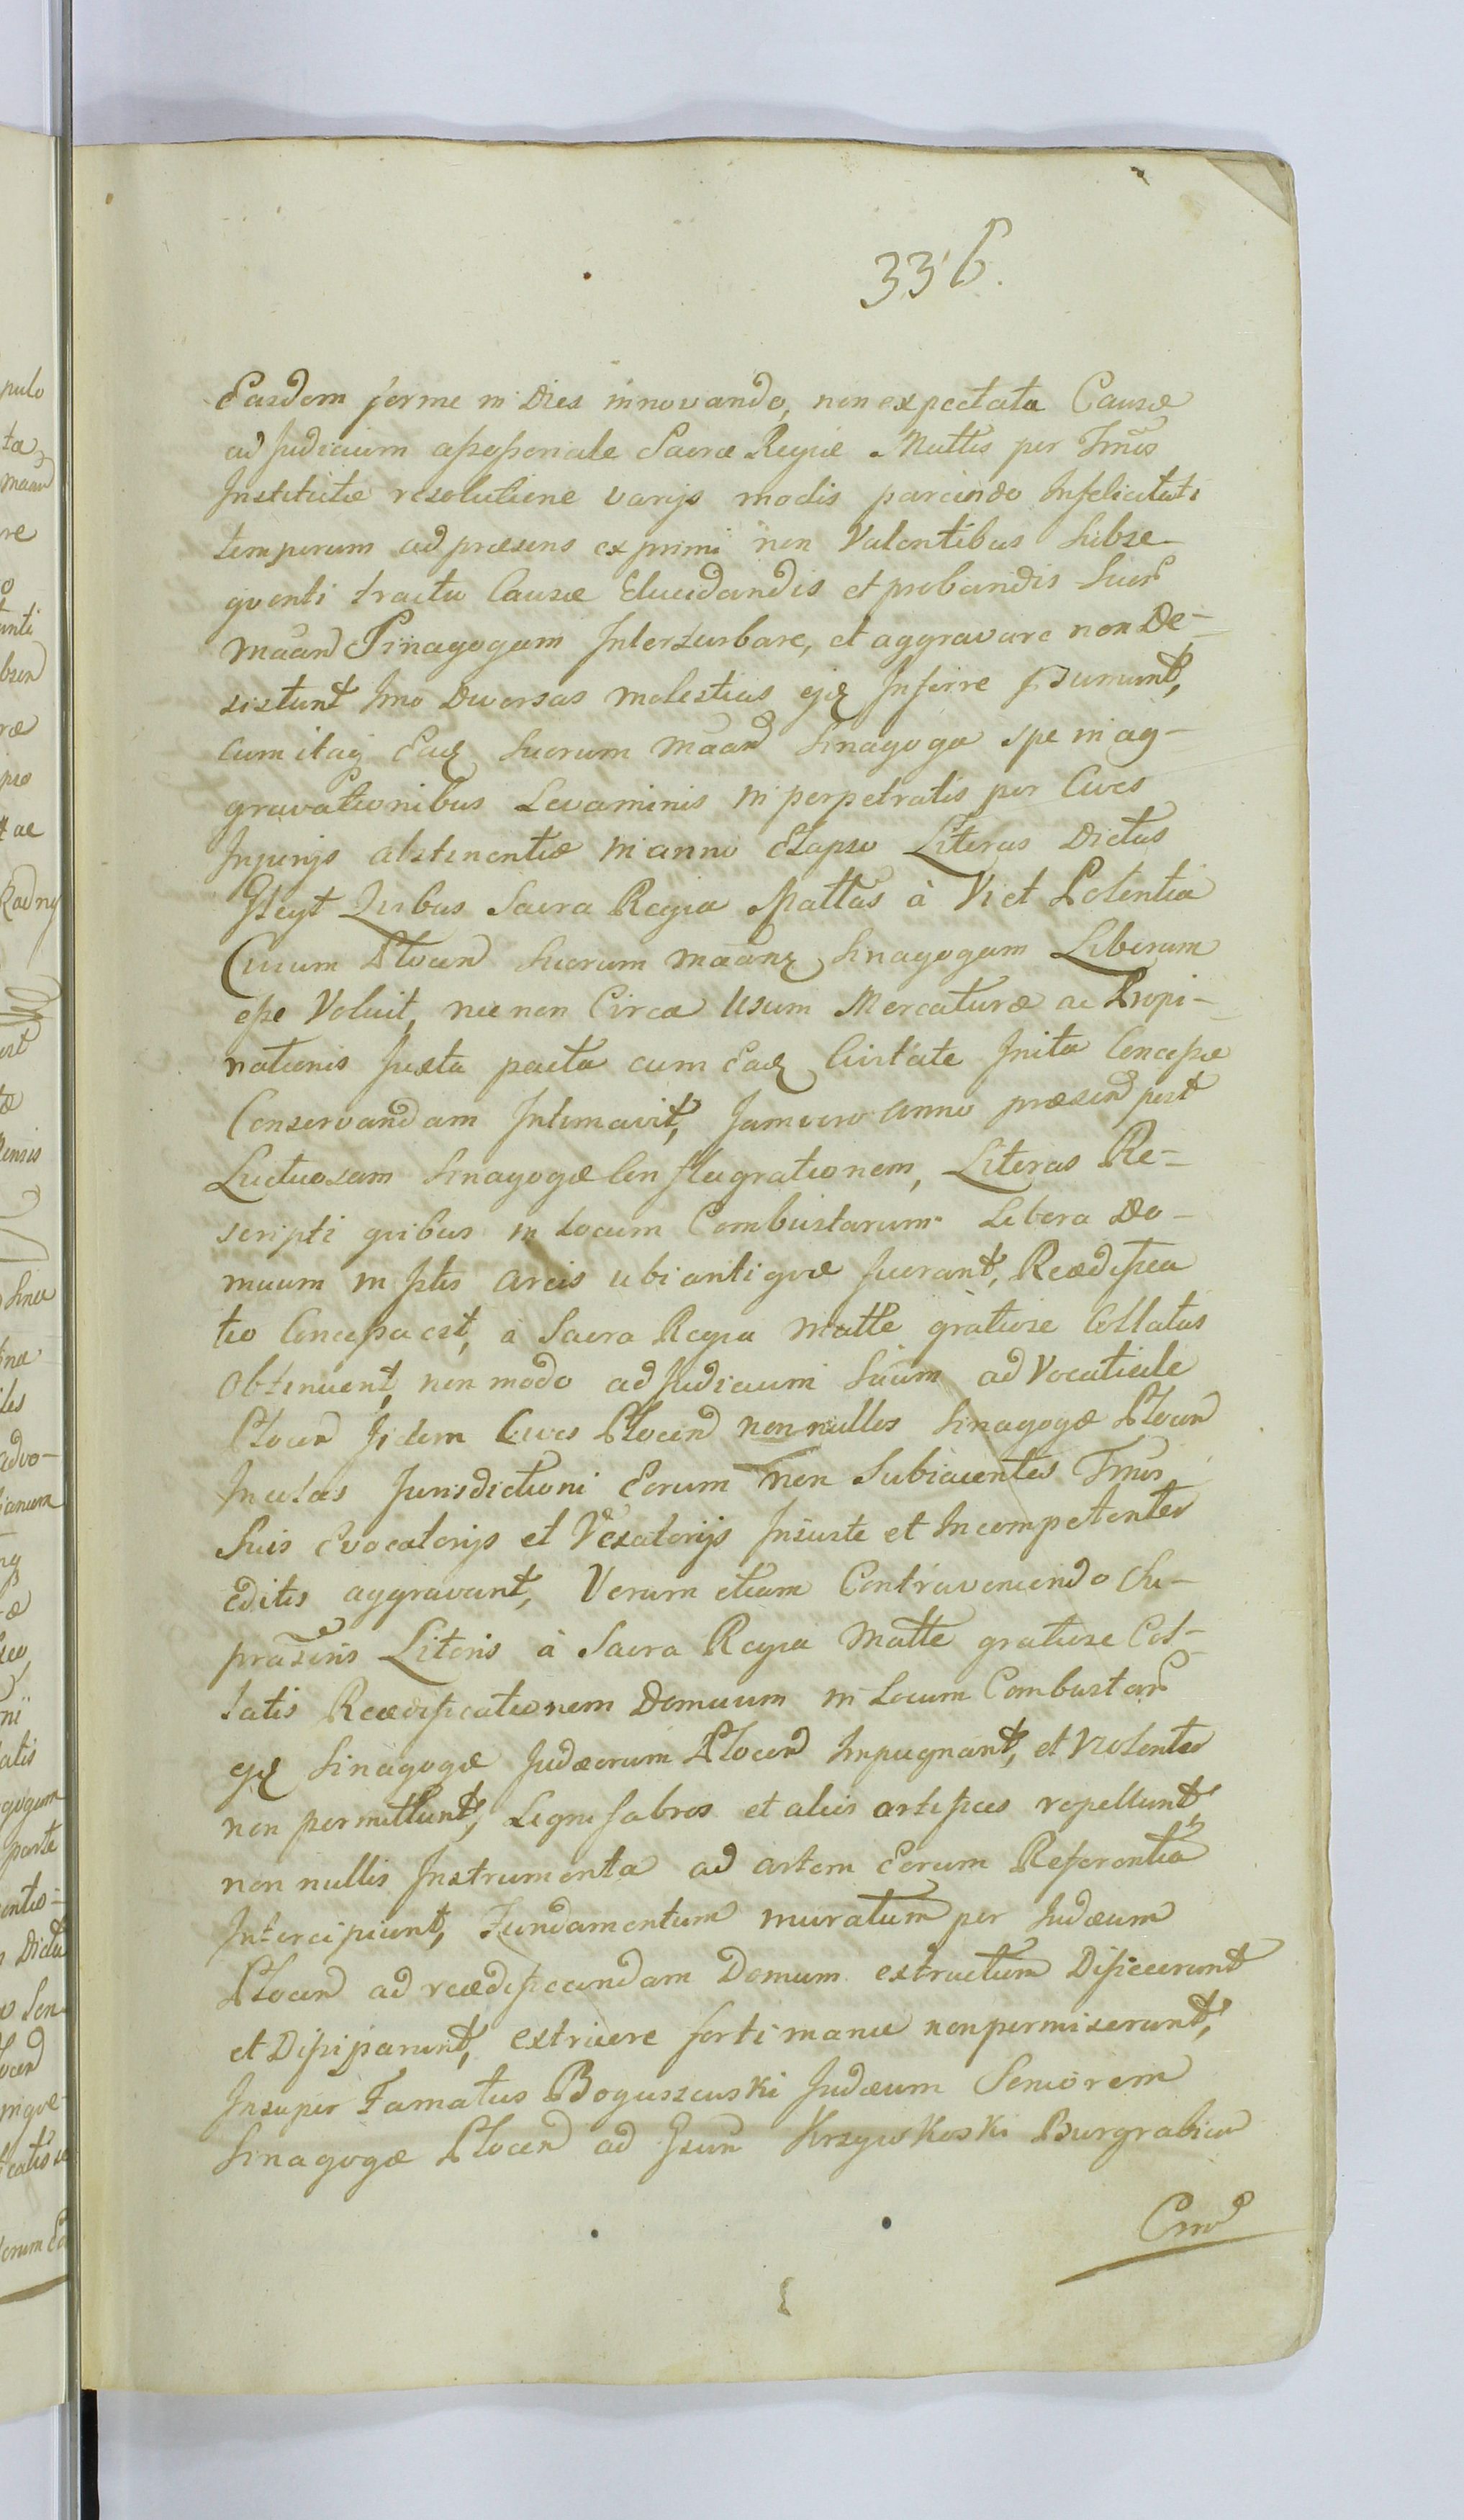 336.
Easdem ferme in Dies innovando, non expectata Causæ
ad Judicium assessoriale Sacræ Regiæ Mattis per Tmũs
Institutæ resolutione varijs modis parciendo Infelicitati
temporum ad præsens exprimi non Valentibus Subse-
quenti tractu Causæ Elucidandis et probandis Suor
maan Sinagogam Interturbare, et aggravare non De-
sistunt Imo Diversas molestias Inferre sumunt,
cum itaq Ead Suorum maan Sinagoga spe in ag-
gravationibus Levaminis in perpetratis per Cives
Injurijs abstinentiæ in anno Elapso Literas Dictas
Gleyt Quibus Sacra Regia Mattas à Vi et Potentia
Civium Plocen Suorum maan Sinagogam Liberam
esse Voluit, nec non Circa Usum Mercaturæ ac Propi-
nationis Juxta pacta cum Ead Civitate Inita Concessæ
Conservandam Intimavit, Jam vero anno præsen post
Luctuosam Sinagogæ Conflagrationem, Literas Re-
scripti quibus in Locum Combustarum Libera Do-
muum in ptis areis ubi antiquæ fuerant, Reædifica
tio Concessa est, à Sacra Regia Matte gratiose Collatas
obtinuent, non modo ad Judicium Suum advocatiale
Plocen Iidem Cives Plocen non nullos Sinagogæ Plocen
Incolas Jurisdictioni Eorum non Subiacentes Tmis
Suis Evocatorijs et Vexatorijs Injuste et Incompetenter
editis aggravant, Verum etiam Contraveniendo Su-
prascris Literis à Sacra Regia Matte gratiose Col-
latis Reædificationem Domuum in Locum Combustar
Sinagogæ Judæorum Plocen Impugnant, et Violenter
non permittunt, Lignifabros et alios artifices repellunt,
non nullis Instrumenta ad artem Eorum Referentia
Intercipiunt, Fundamentum muratum per Judæum
Plocen ad reædificandam Domum extructum Disiecerunt
et Dissiparunt, extruere forti manu non permiserunt,
Insuper Famatus Boguszewski Judæum Seniorem
Sinagogæ Plocen ad Gsum Krzywkoski Burgrabium